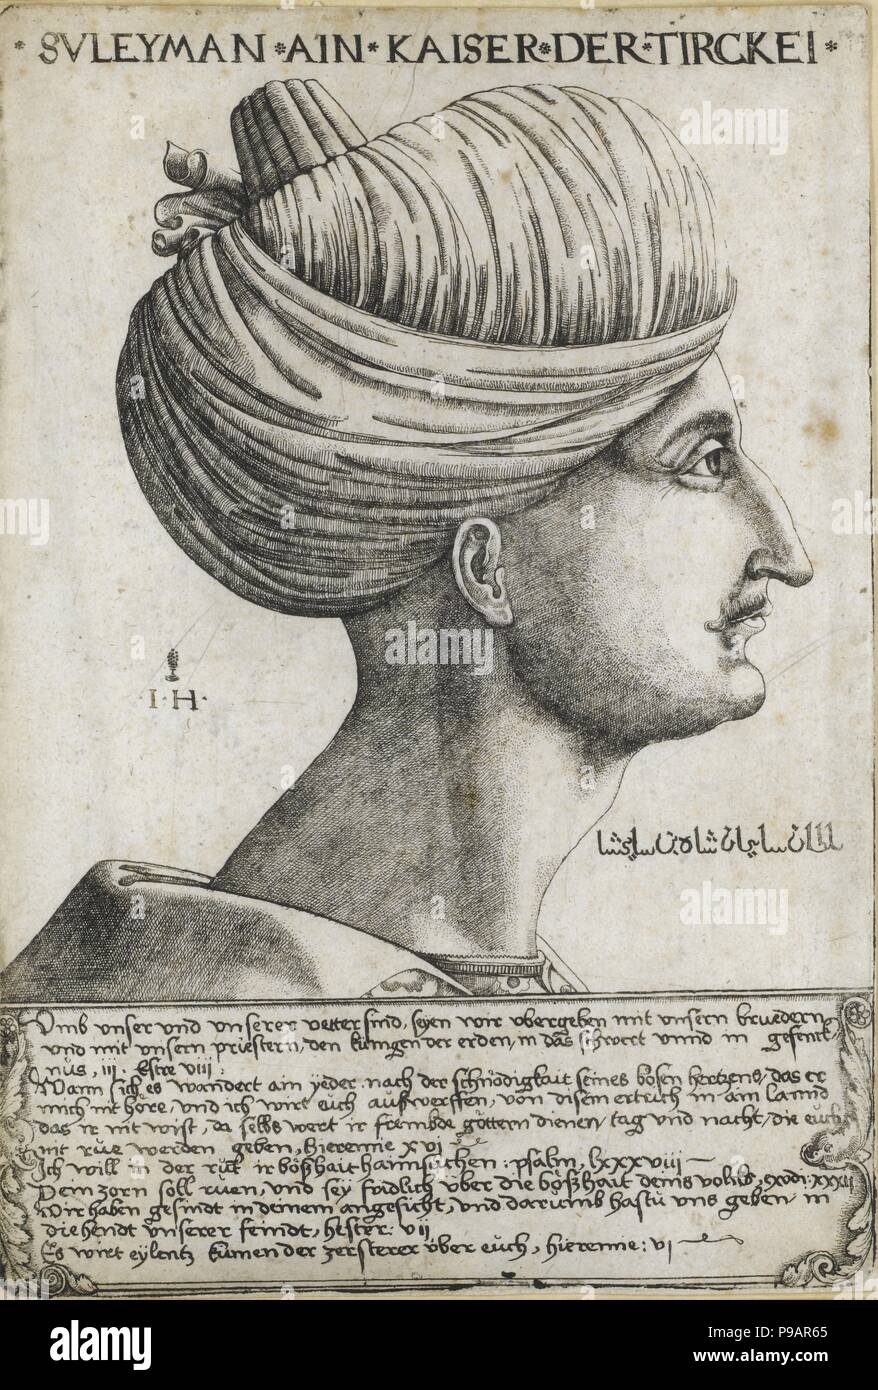 * SVLEYMAN * AIN * KAISER * DER * TIRCKEI *
· I · H ·
Vmb vnser vnd vnserer vetter sind, seyen wir vbergeben mit vnsern bruedern,
vnd mit vnsern priestern, den kunigen der erden, in das schwert vnnd in gefenk
nüs, iii. Estre viii:
Wann sich es wandert ain yeder nach der schnödigkait seines bösen hertzens, das er
mich nit höre, vnd ich wirt euch aufwerffen, von disem ertrich in am lannd
das ir nit wist, da selbs wert ir frembde göttern dienen, tag vnd nacht, die euch
nit rue werden geben, hieremie xvi
Ich will in der rut ir böshait haimsuchen: psalm, lxxxviii
Dein zorn soll ruen, vnd sey fridlich über die böshait deins volks, exodi: xxxii
Wir haben gesündt in deinem angesicht, vnd darumb hastu vns geben, in
die hendt vnserer feindt, hester: vii
Es wirt eylentz kumen der zersterer über euch, hieremie: vi
alamy
alamy stock photo
Image ID: P9AR65
www.alamy.com